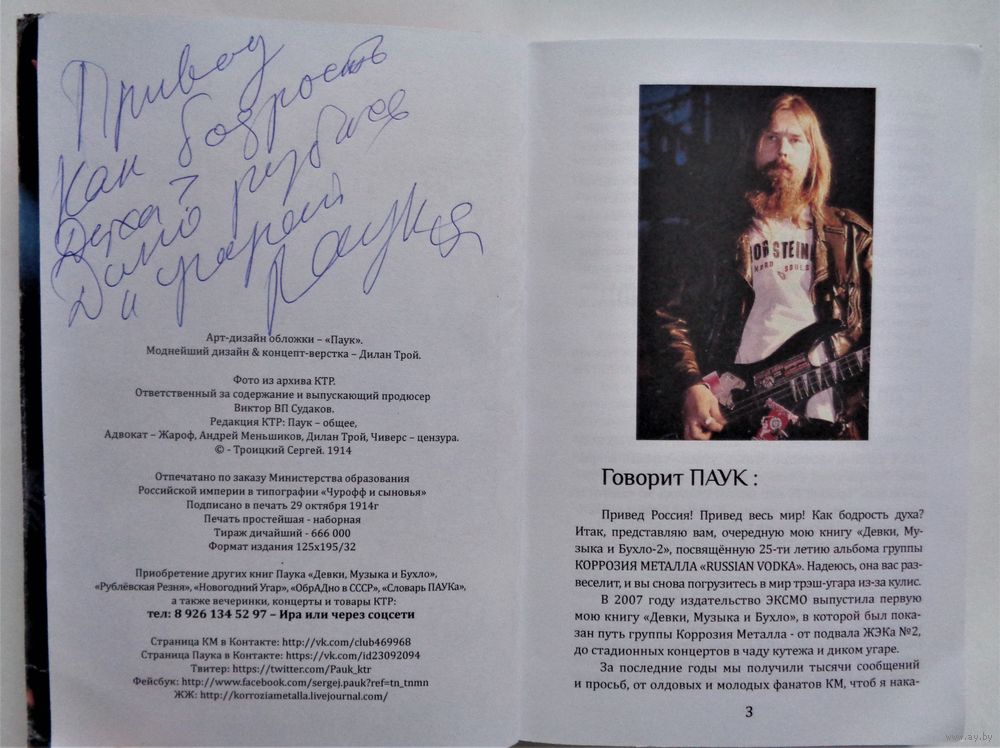 Привед
Как бодрость
духа?
и угарай
Паук
Арт-дизайн обложки – «Паук».
Моднейший дизайн & концепт-верстка – Дилан Трой.
Фото из архива КТР.
Ответственный за содержание и выпускающий продюсер
Виктор ВП Судаков.
Редакция КТР: Паук – общее,
Адвокат – Жароф, Андрей Меньшиков, Дилан Трой, Чиверс – цензура.
© - Троицкий Сергей. 1914
Отпечатано по заказу Министерства образования
Российской империи в типографии «Чурофф и сыновья»
Подписано в печать 29 октября 1914г
Печать простейшая - наборная
Тираж дичайший - 666 000
Формат издания 125х195/32
Приобретение других книг Паука «Девки, Музыка и Бухло»,
«Рублёвская Резня», «Новогодний Угар», «ОбрАДно в СССР», «Словарь ПАУКа»,
а также вечеринки, концерты и товары КТР:
тел: 8 926 134 52 97 – Ира или через соцсети
Страница КМ в Контакте: http://vk.com/club469968
Страница Паука в Контакте: https://vk.com/id23092094
Твитер: https://twitter.com/Pauk_ktr
Фейсбук: http://www.facebook.com/sergej.pauk?ref=tn_tnmn
ЖЖ: http://korroziametalla.livejournal.com/
STEIN
HARD SOULS
Говорит ПАУК :
Привед Россия! Привед весь мир! Как бодрость духа?
Итак, представляю вам, очередную мою книгу «Девки, Му-
зыка и Бухло-2», посвящённую 25-ти летию альбома группы
КОРРОЗИЯ МЕТАЛЛА «RUSSIAN VODKA». Надеюсь, она вас раз-
веселит, и вы снова погрузитесь в мир трэш-угара из-за кулис.
В 2007 году издательство ЭКСМО выпустила первую
мою книгу «Девки, Музыка и Бухло», в которой был пока-
зан путь группы Коррозия Металла - от подвала ЖЭКа №2,
до стадионных концертов в чаду кутежа и диком угаре.
За последние годы мы получили тысячи сообщений
и просьб, от олдовых и молодых фанатов КМ, чтоб я нака-
3
www.ay.by